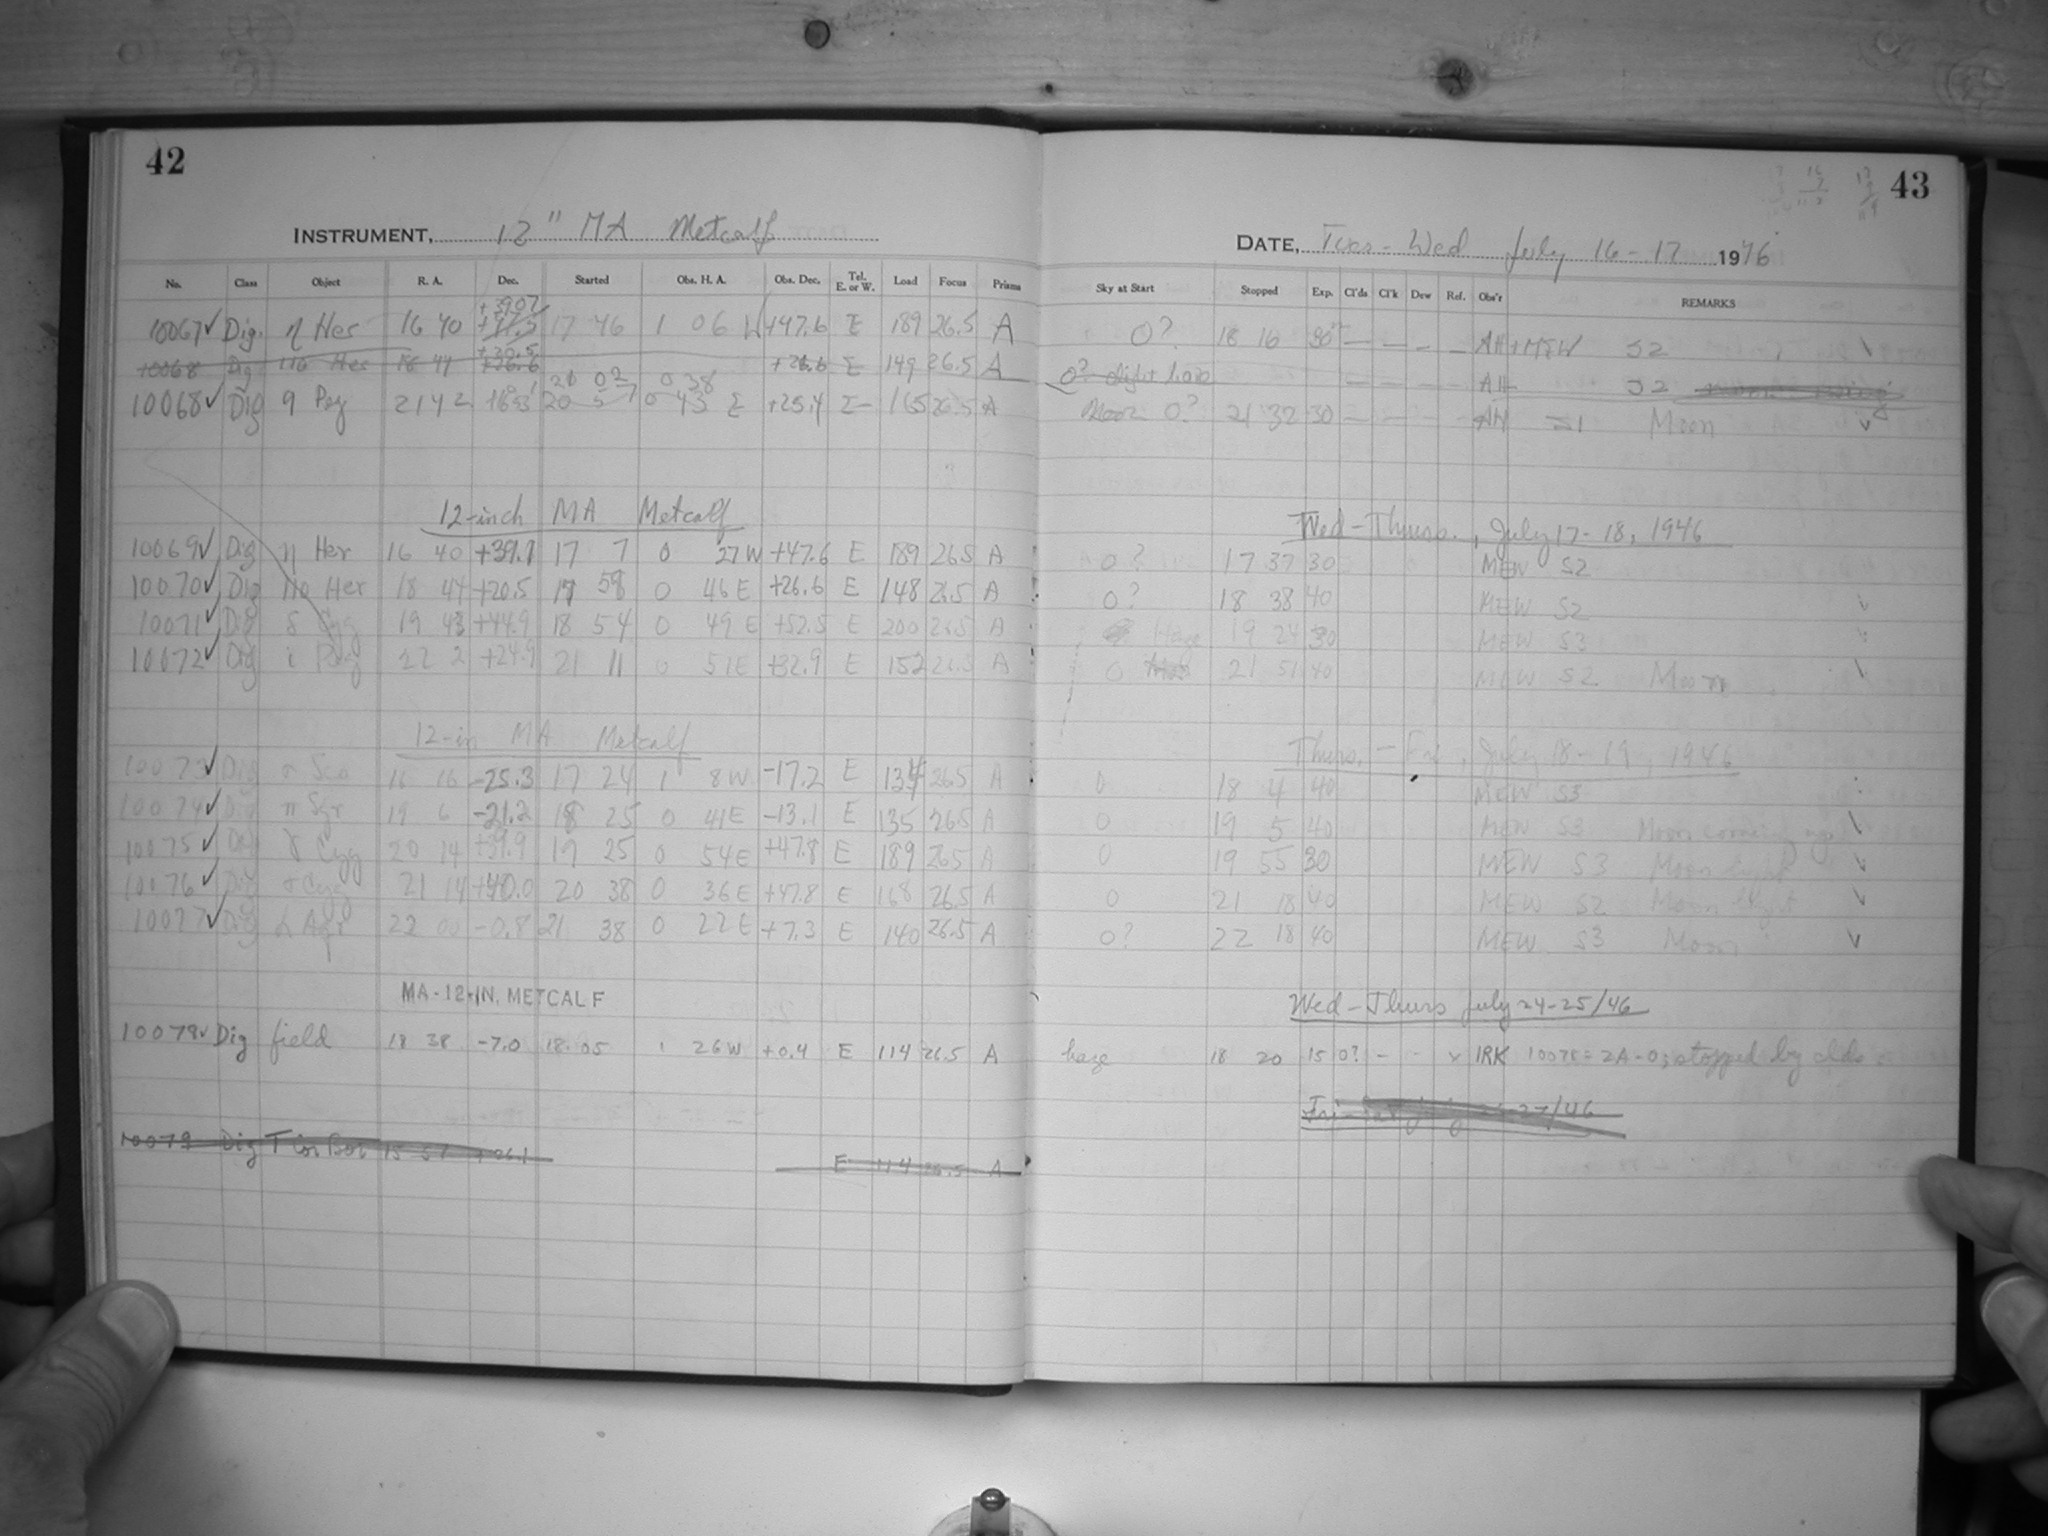 42
INSTRUMENT, 12" MA Metcalf
No. Class Object R. A. Dec. Started Obs. H. A. Obs. Dec. Tel. E. or W. Load Focus Prisms
+39.07
10067✓ Dig. η Her 16 40 17 46 1 06 W +47.6 E 189 26.5 A
+20.5
10068 Dig 110 Her 18 44 +26.6 +26.6 E 149 26.5 A
20 02 0 38
10068✓ Dig 9 Peg 21 42 20 57 0 43 E +25.4 E 165 26.5 A
12-inch MA Metcalf
10069✓ Dig η Her 16 40 +39.1 17 7 0 27W +47.6 E 189 26.5 A
10070✓ Dig 110 Her 18 44 +20.5 17 58 0 46E +26.6 E 148 26.5 A
10071✓ Dig δ Cyg 19 43 +44.9 18 54 0 49 E +52.5 E 200 26.5 A
10072✓ Dig ι Peg 22 2 +24.9 21 11 0 51E +32.9 E 152 26.5 A
12-in MA Metcalf
10073✓ Dig σ Sco 16 16 -25.3 17 24 1 8W -17.2 E 134 26.5 A
10074✓ Dig π Sgr 19 6 -21.2 18 25 0 41E -13.1 E 135 26.5 A
10075✓ Dig γ Cyg 20 14 +39.9 19 25 0 54E +47.8 E 189 26.5 A
10176✓ Dig σ Cyg 21 14 +40.0 20 38 0 36E +47.8 E 168 26.5 A
10077✓ Dig α Aqr 22 00 -0.8 21 38 0 22E +7.3 E 140 26.5 A
MA-12-IN. METCALF
10078✓ Dig field 18 38 -7.0 18 05 1 26W +0.4 E 114 26.5 A
10079 Dig T Cor Bor 15 57 +26.1 E 114 26.5 A
43
DATE, Tues-Wed July 16-17 1946
Sky at Start Stopped Exp. Cl'ds Cl'k Dew Ref. Obs'r REMARKS
0? 18 16 30 — — — — AH+MEW S2 ✓
0? slight haze — — — — AH S2
Moon 0? 21 32 30 — — — — AH S1 Moon ✓
Wed-Thurs., July 17-18, 1946
0? 17 37 30 MEW S2
0? 18 38 40 MEW S2 ✓
Haze 19 24 30 MEW S3 ✓
0 21 51 40 MEW S2 Moon ✓
Thurs.-Fri, July 18-19, 1946
0 18 4 40 MEW S3
0 19 5 40 MEW S3 Moon coming up ✓
0 19 55 30 MEW S3 Moon light ✓
0 21 18 40 MEW S2 Moon light ✓
0? 22 18 40 MEW S3 Moon ✓
Wed-Thurs July 24-25/46
haze 18 20 15 0? - - x IRK 10078=2A-0; stopped by clds